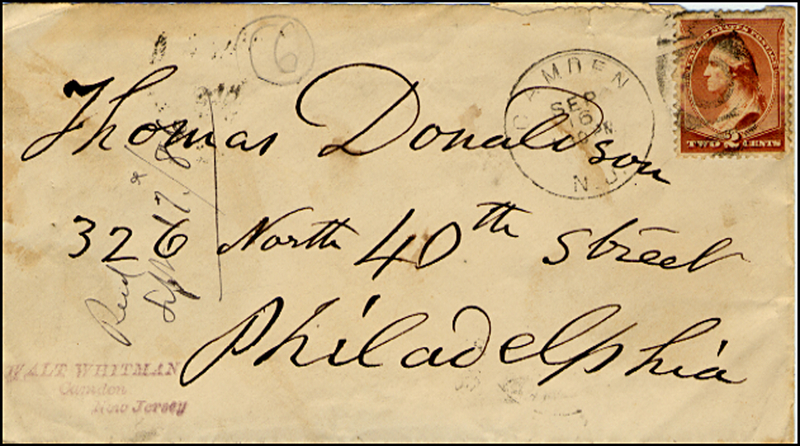 6
CAMDEN
SEP
16
N.J.
UNITED STATES POSTAGE
TWO 2 CENTS
Thomas Donaldson
326 North 40th Street
Philadelphia
Recd
Sept 17/8
WALT WHITMAN
Camden
New Jersey